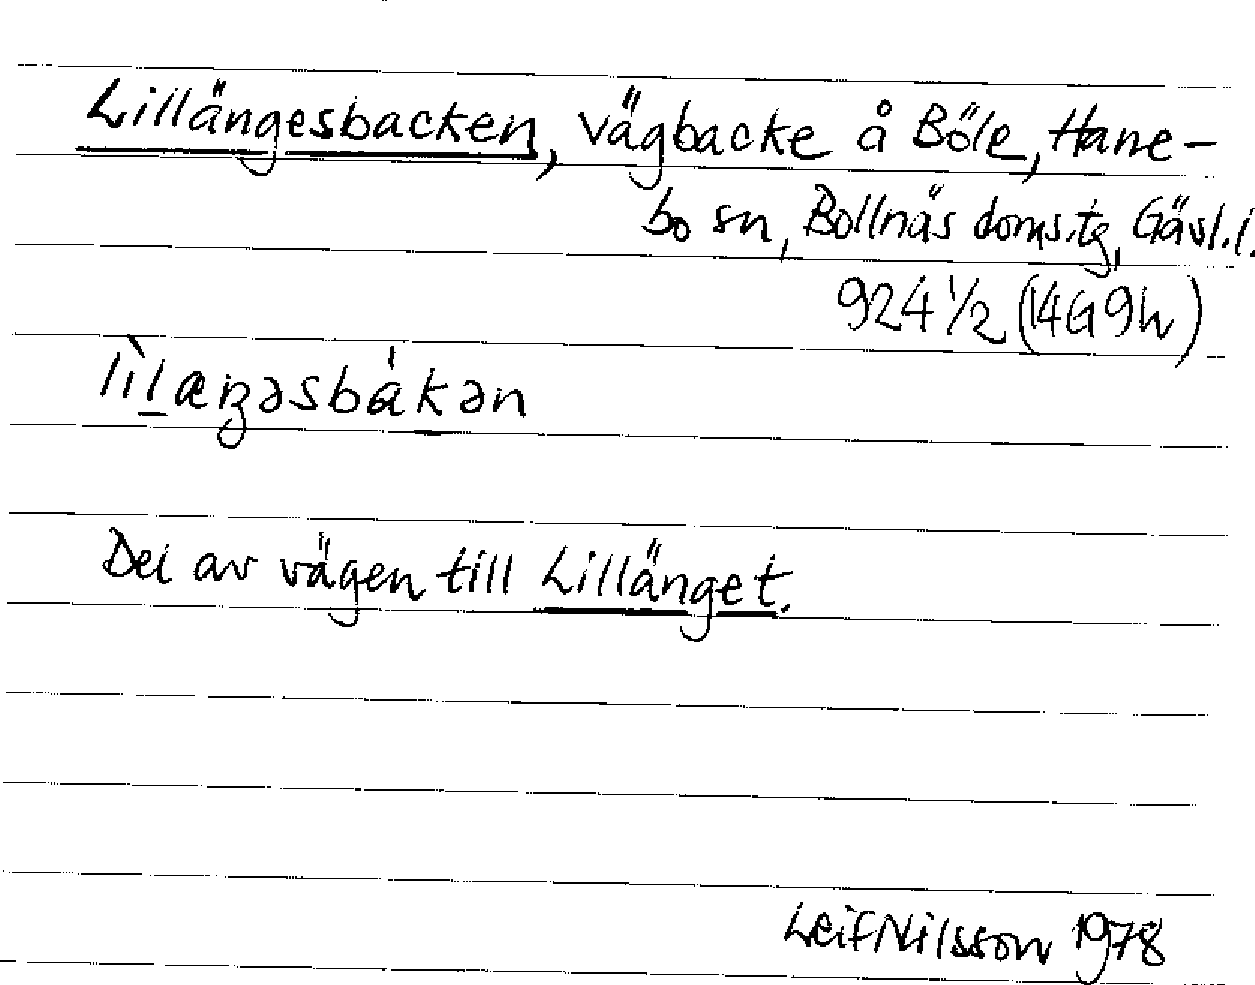 Lillängesbacken, vägbacke å Böle, Hane-
bo sn, Bollnäs doms.tg, Gävl.l.
924 1/2 (14G9h)
lìlæŋəsbákən
Del av vägen till Lillänget.
Leif Nilsson 1978